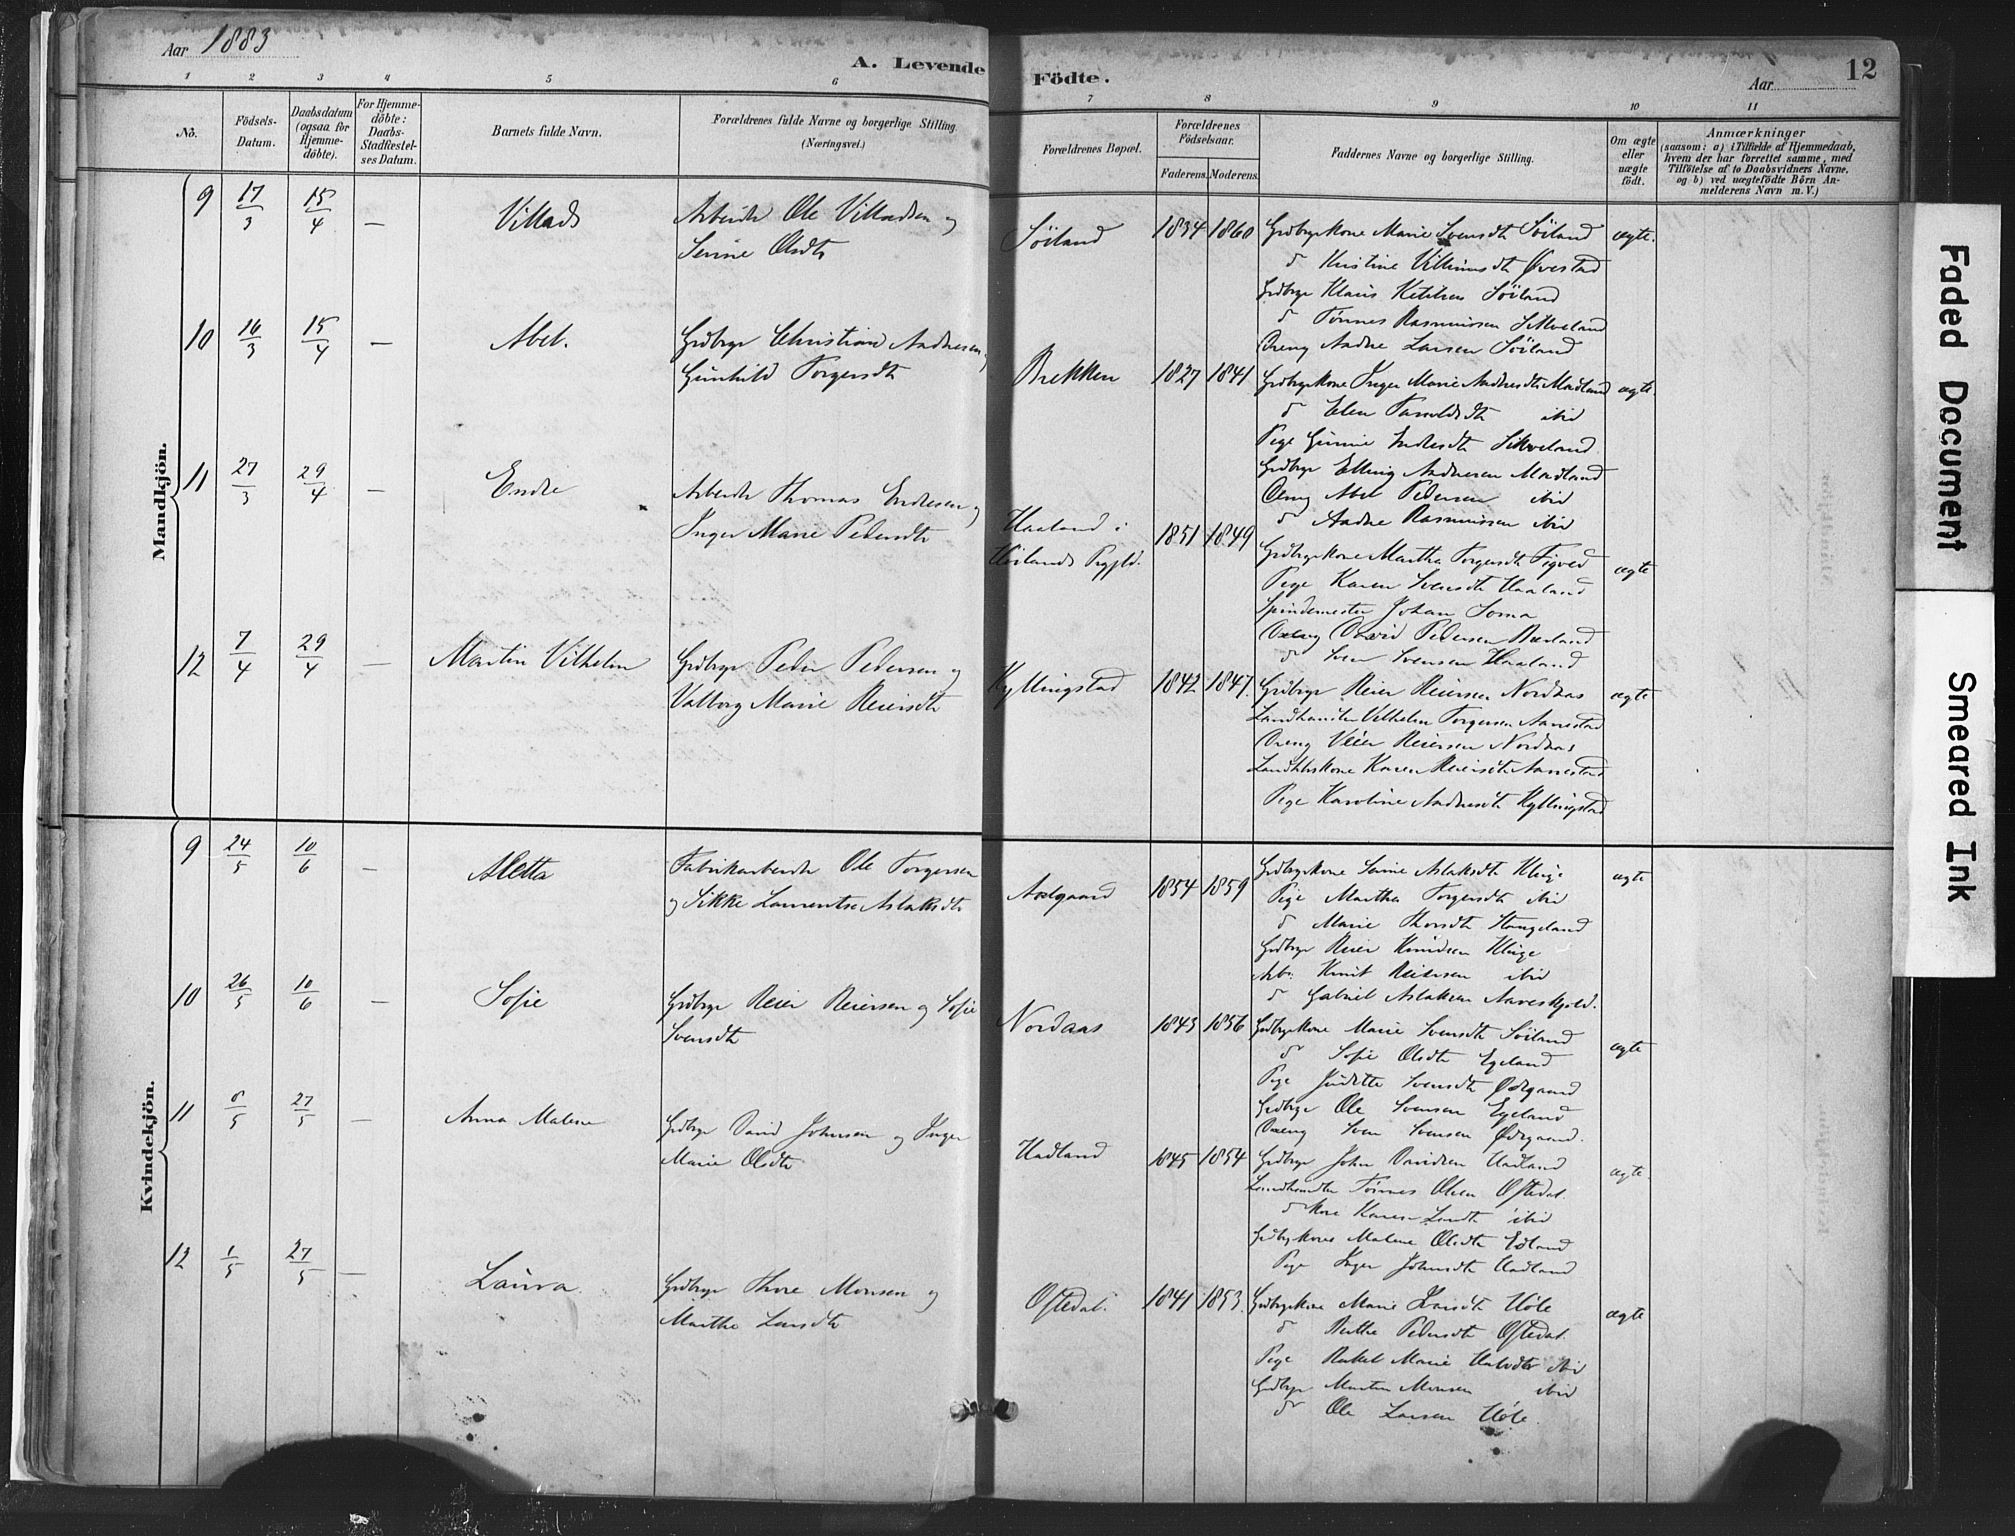 Aar 1883
A. Levende
1 2 3 4 5 6
No.
Födsels-Datum.
Daabsdatum (ogsaa for Hjemme-döbte).
For Hjemme-döbte: Daabs-Stadfæstel-ses Datum.
Barnets fulde Navn.
Forældrenes fulde Navne og borgerlige Stilling
(Næringsvei.)
Födte.
Aar
12
7 8 9 10 11
Forældrenes Bopæl.
Forældrenes Födselsaar.
Faderens. Moderens.
Faddernes Navne og borgerlige Stilling.
Om ægte eller uægte födt.
Anmærkninger
(saasom: a) i Tilfælde af Hjemmedaab,
hvem der har forrettet samme, med
Tilföielse af to Daabsvidners Navne,
og b) ved uægtefödte Börn An-
melderens Navn m. V.)
Mandkjön.
9 17/3 15/4 — Villads
Arbeider Ole Villadsen og
Serine Olsdtr
Söiland 1834 1860
Grdbrgerkone Marie Svensdtr Söiland
do Kristine Øvestad
Grdbrgr Klaus Söiland
do Tönnes Rasmussen Sikveland
Dreng Andre Larsen Söiland
ægte.
10 16/3 15/4 — Abel.
Grdbrgr Christian Andresen og
Gunhild Torgersdtr
Brekken 1827 1841
Grdbrgerkone Inger Marie Andresdtr Madland
do Elen ibid
Pige Gunnie Endresdtr Sikveland
Grdbrgr Elling Andresen Madland
Dreng Abel Pedersen ibid
do Andre Rasmussen ibid
ægte.
11 27/3 29/4 — Endre
Arbeider Thomas Endresen og
Inger Marie Pedersdtr
Haaland i
Höilands Prgjld.
1851 1849
Grdbrgerkone Martha Torgersdtr Figved
Pige Karen Svensdtr Haaland
Spindemester Johan Soma
Dreng David Pedersen
do Sven Svensen Haaland
ægte
12 7/4 29/4 — Martin Vilhelm
Grdbrgr Peder Pedersen og
Valborg Marie Reiersdtr
Kyllingstad 1842 1847.
Grdbrgr Reier Reiersen Nordaas
Landhandler Vilhelm Torgersen Aarrestad
Dreng Reiersen Nordaas
Landhlskone Karen Reiersdtr Aarrestad
Pige Karoline Andresdtr Kyllingstad
ægte
Kvindekjön.
9 24/5 10/6 — Aletta
Fabrikarbeider Ole Torgersen
og Sikke Laurentse Aslaksdtr
Aalgaard 1854 1859
Grdbrgerkone Aslaksdtr Kluge
Pige Martha Torgersdtr ibid
do Marie Thorsdtr Stangeland
Grdbrgr Reier Knudsen Kluge
Arb. Knut Reiersen ibid
do Gabriel Aslaksen
ægte
10 26/5 10/6 — Sofie
Grdbrgr Reier Reiersen og Sofie
Svensdtr
Nordaas 1843 1856
Grdbrgerkone Marie Svensdtr Söiland
do Sofie Olsdtr Egeland
Pige Judithe Svensdtr Ødegaard
Grdbrgr Ole Svensen Egeland
Dreng Sven Svensen Ødegaard.
ægte
11 8/5 27/5 — Anna Malene
Grdbrgr David Johnsen og Inger
Marie Olsdtr
Hadland 1845 1854
Grdbrgr John Davidsen Hadland
Landhandler Tönnes Olsen Oftedal.
do kone Karen ibid
Grdbrgkone Malene Olsdtr Edland
Pige Inger Johnsdtr Hadland
ægte.
12 1/5 27/5 — Laura.
Grdbrgr Thore Monsen og
Marthe Larsdtr
Oftedal. 1841 1853.
Grdbrgerkone Marie Larsdtr Höle
do Berthe Pedersdtr Oftedal.
Pige Rakel Marie ibid
Grdbrgr Morten Monsen ibid
do Ole Larsen Höle.
ægte
Faded Document
Smeared Ink